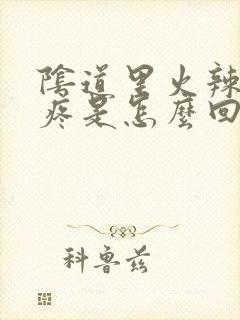 陰道里火辣
疼是怎麼回
科魯茲